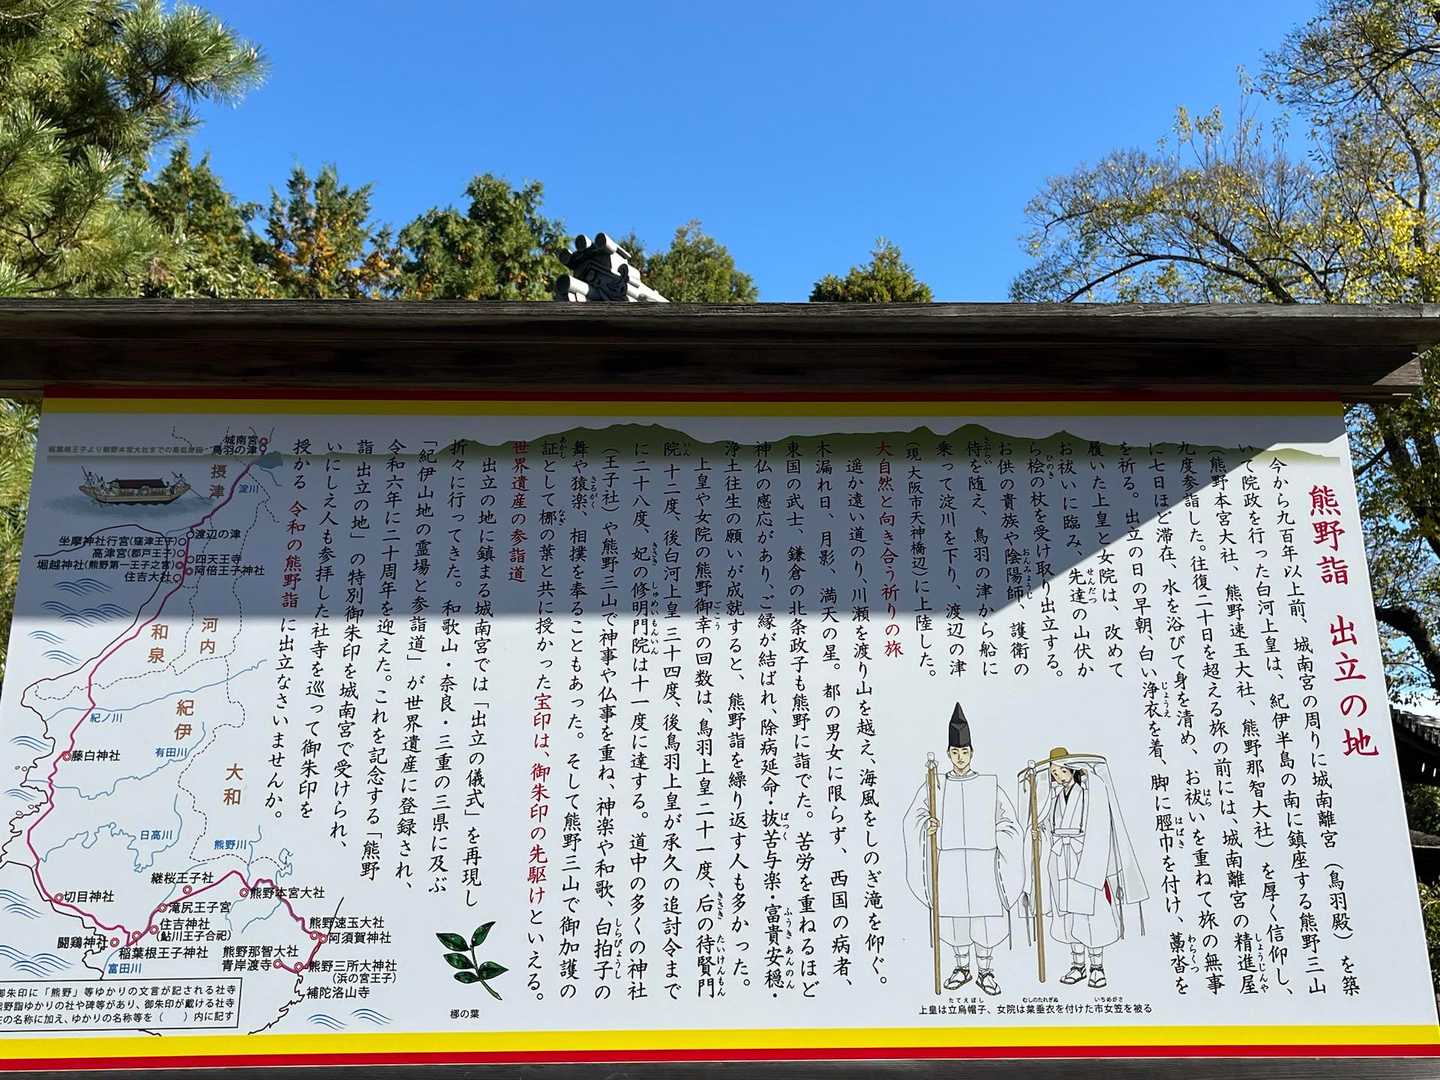 熊野詣 出立の地
今から九百年以上前、城南宮の周りに城南離宮（鳥羽殿）を築
いて院政を行った白河上皇は、紀伊半島の南に鎮座する熊野三山
（熊野本宮大社、熊野速玉大社、熊野那智大社）を厚く信仰し、
九度参詣した。往復二十日を超える旅の前には、城南離宮の精進屋
に七日ほど滞在、水を浴びて身を清め、お祓いを重ねて旅の無事
を祈る。出立の日の早朝、白い浄衣を着、脚に脛巾を付け、藁沓を
履いた上皇と女院は、改めて
お祓いに臨み、先達の山伏か
ら桧の杖を受け取り出立する。
お供の貴族や陰陽師、護衛の
侍を随え、鳥羽の津から船に
乗って淀川を下り、渡辺の津
（現 大阪市天神橋辺）に上陸した。
大自然と向き合う祈りの旅
遥か遠い道のり、川瀬を渡り山を越え、海風をしのぎ滝を仰ぐ。
木漏れ日、月影、満天の星。都の男女に限らず、西国の病者、
東国の武士、鎌倉の北条政子も熊野に詣でた。苦労を重ねるほど
神仏の感応があり、ご縁が結ばれ、除病延命・抜苦与楽・富貴安穏・
浄土往生の願いが成就すると、熊野詣を繰り返す人も多かった。
上皇や女院の熊野御幸の回数は、鳥羽上皇二十一度、后の待賢門
院 十二度、後白河上皇 三十四度、後鳥羽上皇が承久の追討令まで
に二十八度、妃の修明門院は十一度に達する。道中の多くの神社
（王子社）や熊野三山で神事や仏事を重ね、神楽や和歌、白拍子の
舞や猿楽、相撲を奉ることもあった。そして熊野三山で御加護の
証として梛の葉と共に授かった宝印は、御朱印の先駆けといえる。
世界遺産の参詣道
出立の地に鎮まる城南宮では「出立の儀式」を再現し
折々に行ってきた。和歌山・奈良・三重の三県に及ぶ
「紀伊山地の霊場と参詣道」が世界遺産に登録され、
令和六年に二十周年を迎えた。これを記念する「熊野
詣 出立の地」の特別御朱印を城南宮で受けられ、
いにしえ人も参拝した社寺を巡って御朱印を
授かる 令和の熊野詣 に出立なさいませんか。
たてえぼし むしのたれぎぬ いちめがさ
上皇は立烏帽子、女院は枲垂衣を付けた市女笠を被る
梛の葉
城南宮
鳥羽の津
摂津
淀川
渡辺の津
坐摩神社行宮(窪津王子)
高津宮(郡戸王子)
堀越神社(熊野第一王子之宮)
四天王寺
阿倍王子神社
住吉大社
和泉
河内
紀ノ川
紀伊
藤白神社
有田川
大和
日高川
熊野川
継桜王子社
熊野本宮大社
切目神社
滝尻王子宮
住吉神社
(鮎川王子合祀)
闘鶏神社
稲葉根王子神社
富田川
熊野速玉大社
阿須賀神社
熊野那智大社
青岸渡寺
熊野三所大神社
(浜の宮王子)
補陀洛山寺
御朱印に「熊野」等ゆかりの文言が記される社寺
熊野詣ゆかりの社や碑等があり、御朱印が戴ける社寺
の名称に加え、ゆかりの名称等を（ ）内に記す